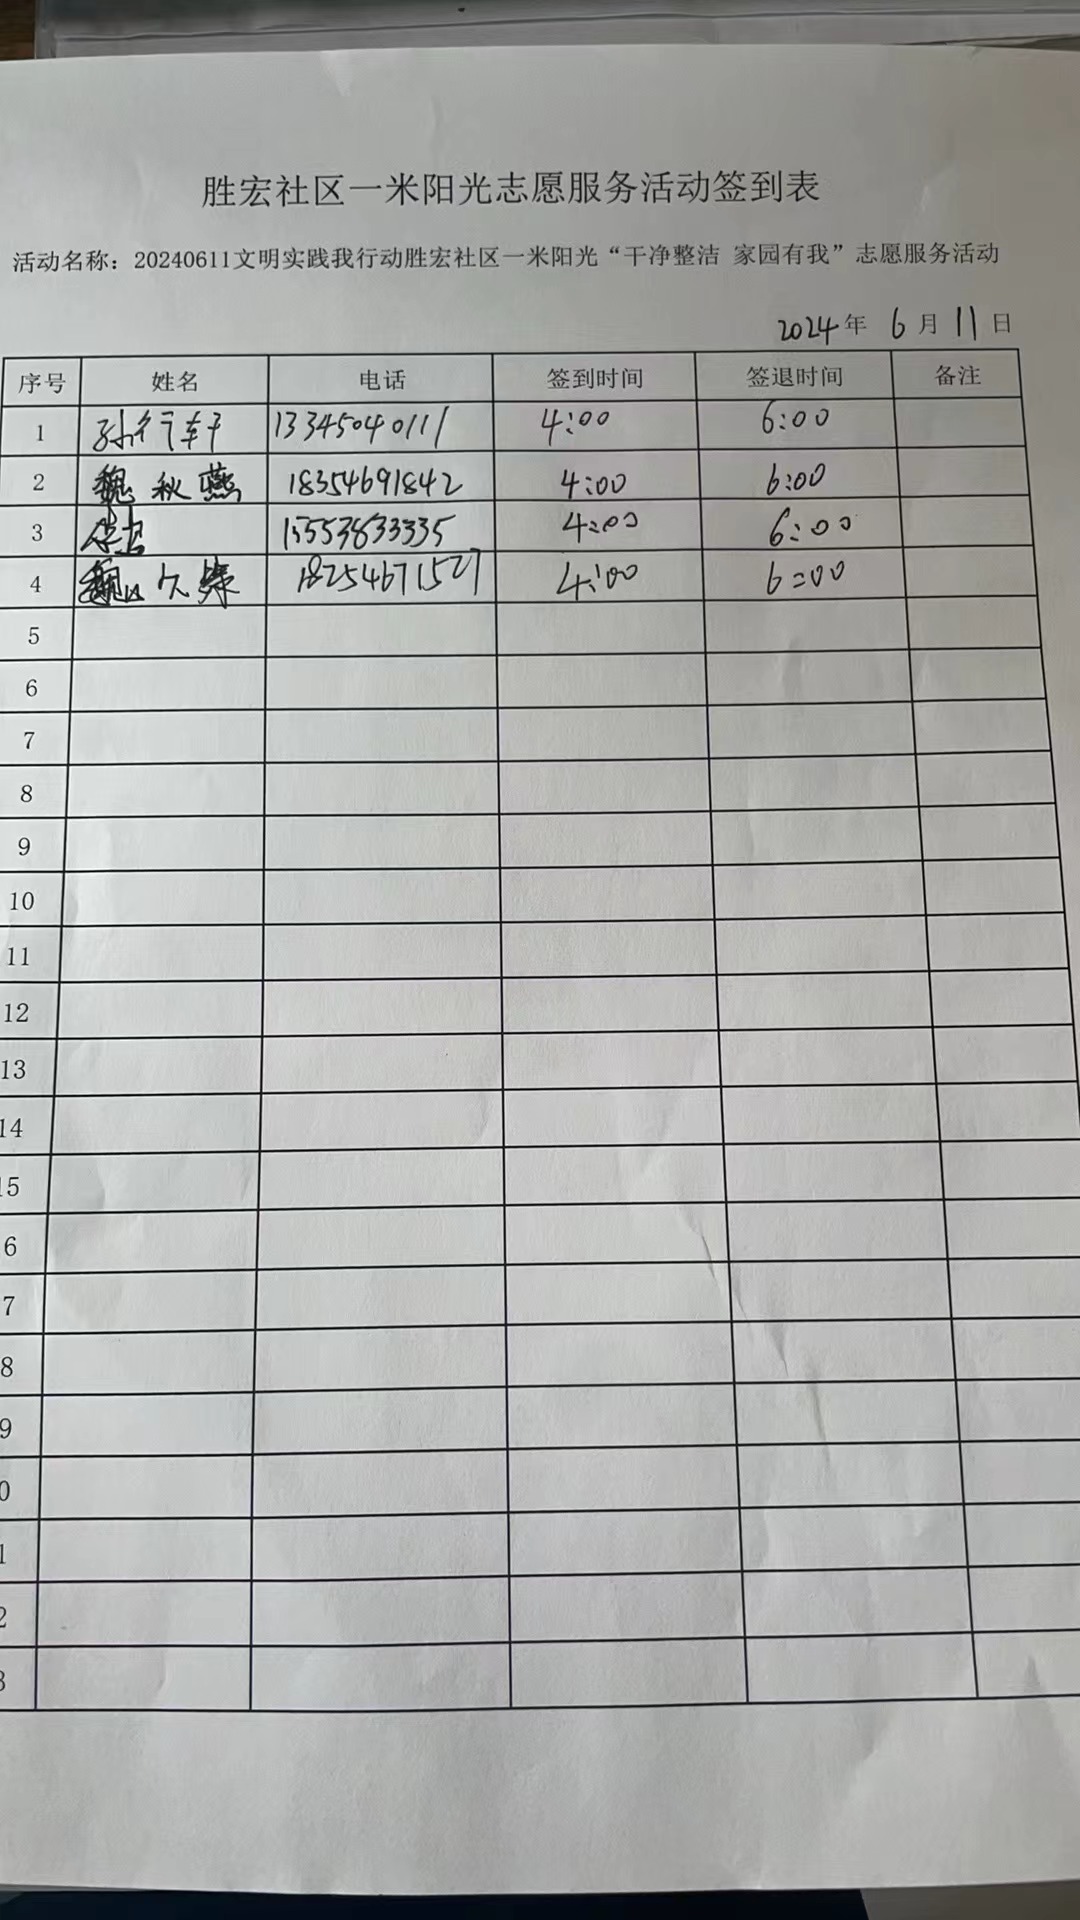 胜宏社区一米阳光志愿服务活动签到表
活动名称：20240611文明实践我行动胜宏社区一米阳光“干净整洁 家园有我”志愿服务活动
2024年 6月11日
序号 姓名 电话 签到时间 签退时间 备注
1 孙行轩 13345040111 4:00 6:00
2 魏秋燕 18354691842 4:00 6:00
3 15553833335 4:00 6:00
4 18254671527 4:00 6:00
5
6
7
8
9
10
11
12
13
14
15
6
7
8
9
0
1
2
3